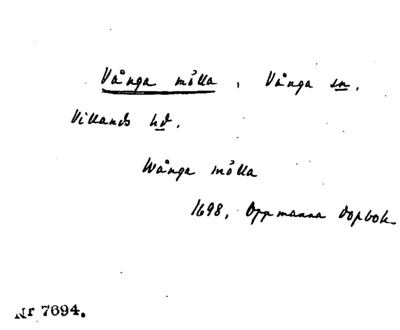 Vånga mölla, Vånga sn.
Villands hd.
Wånga mölla
1698, Oppmanna dopbok
Nr 7694.